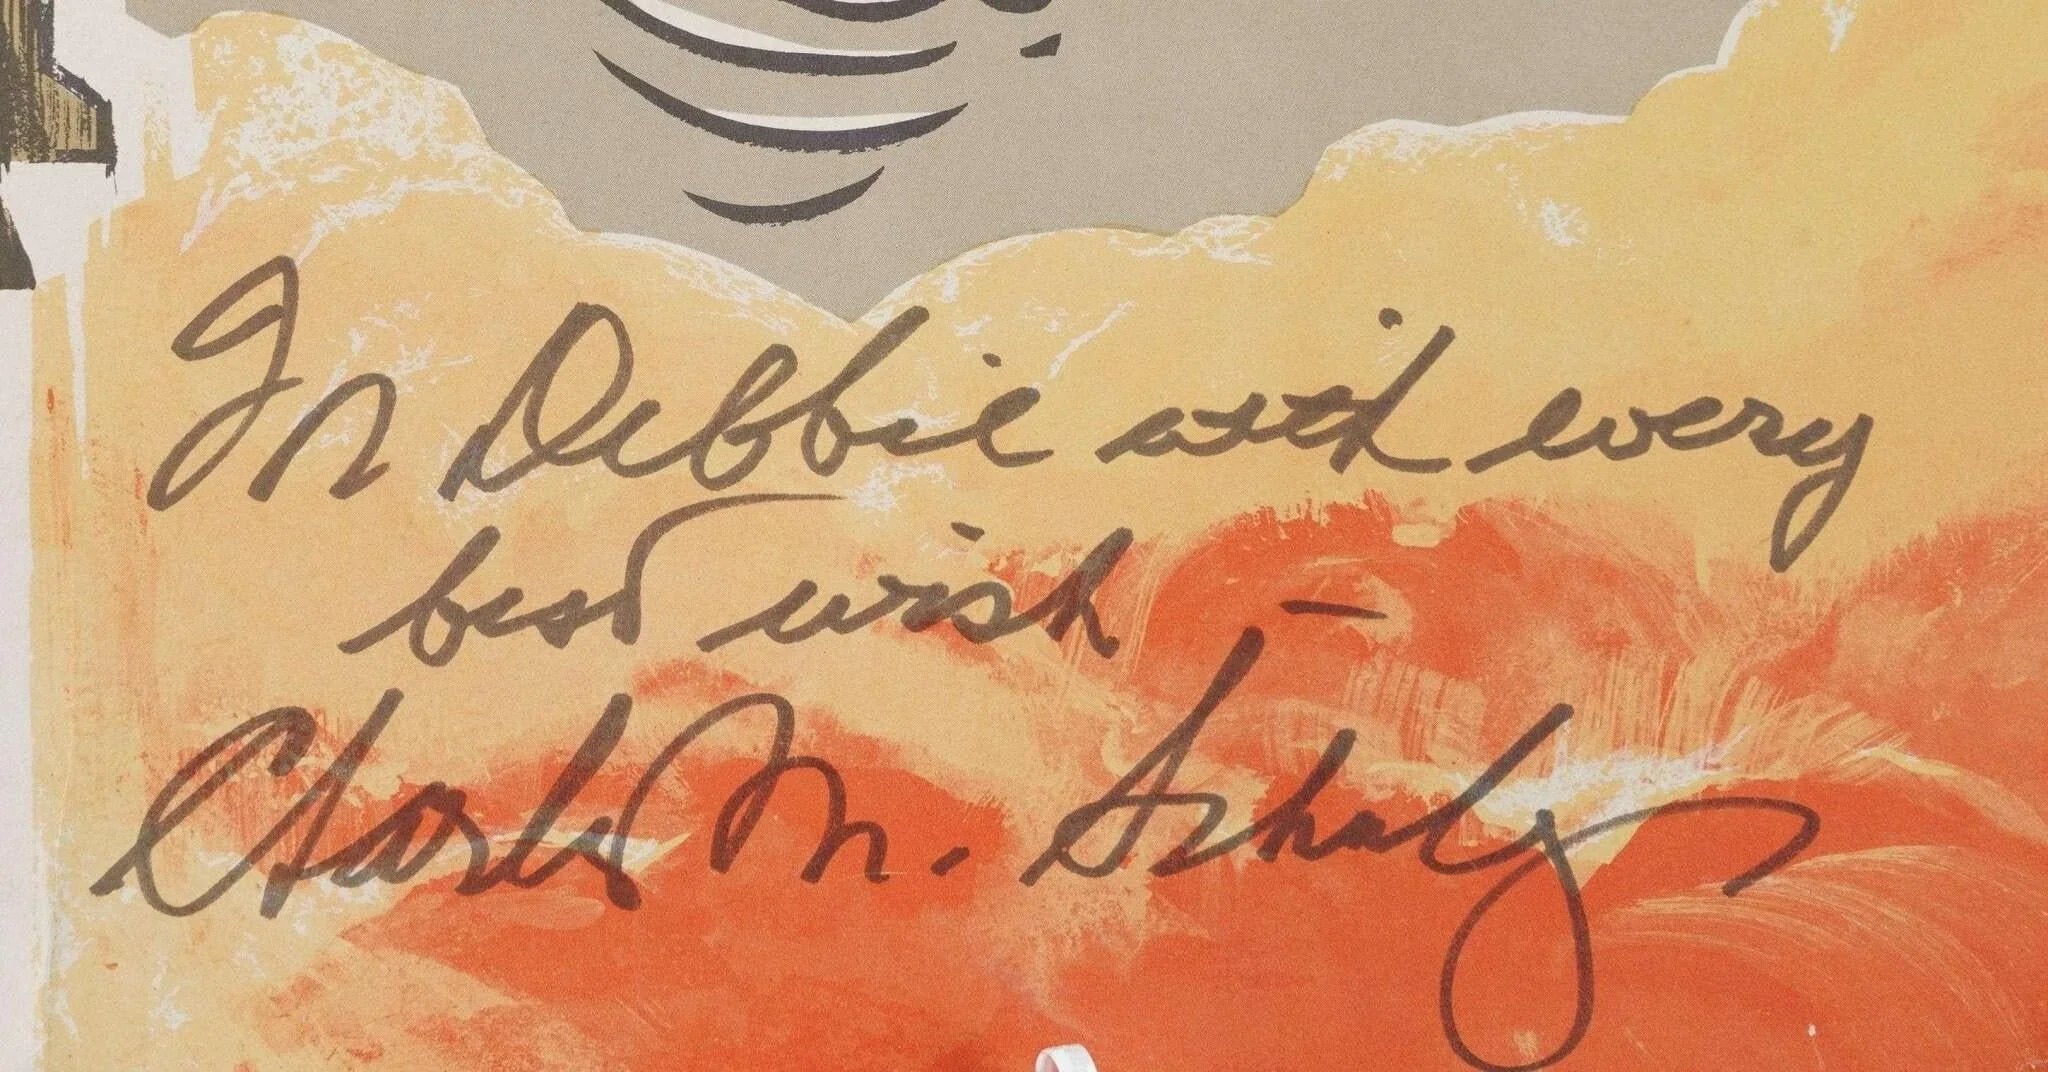 For Debbie with every
best wish —
Charles M. Schulz